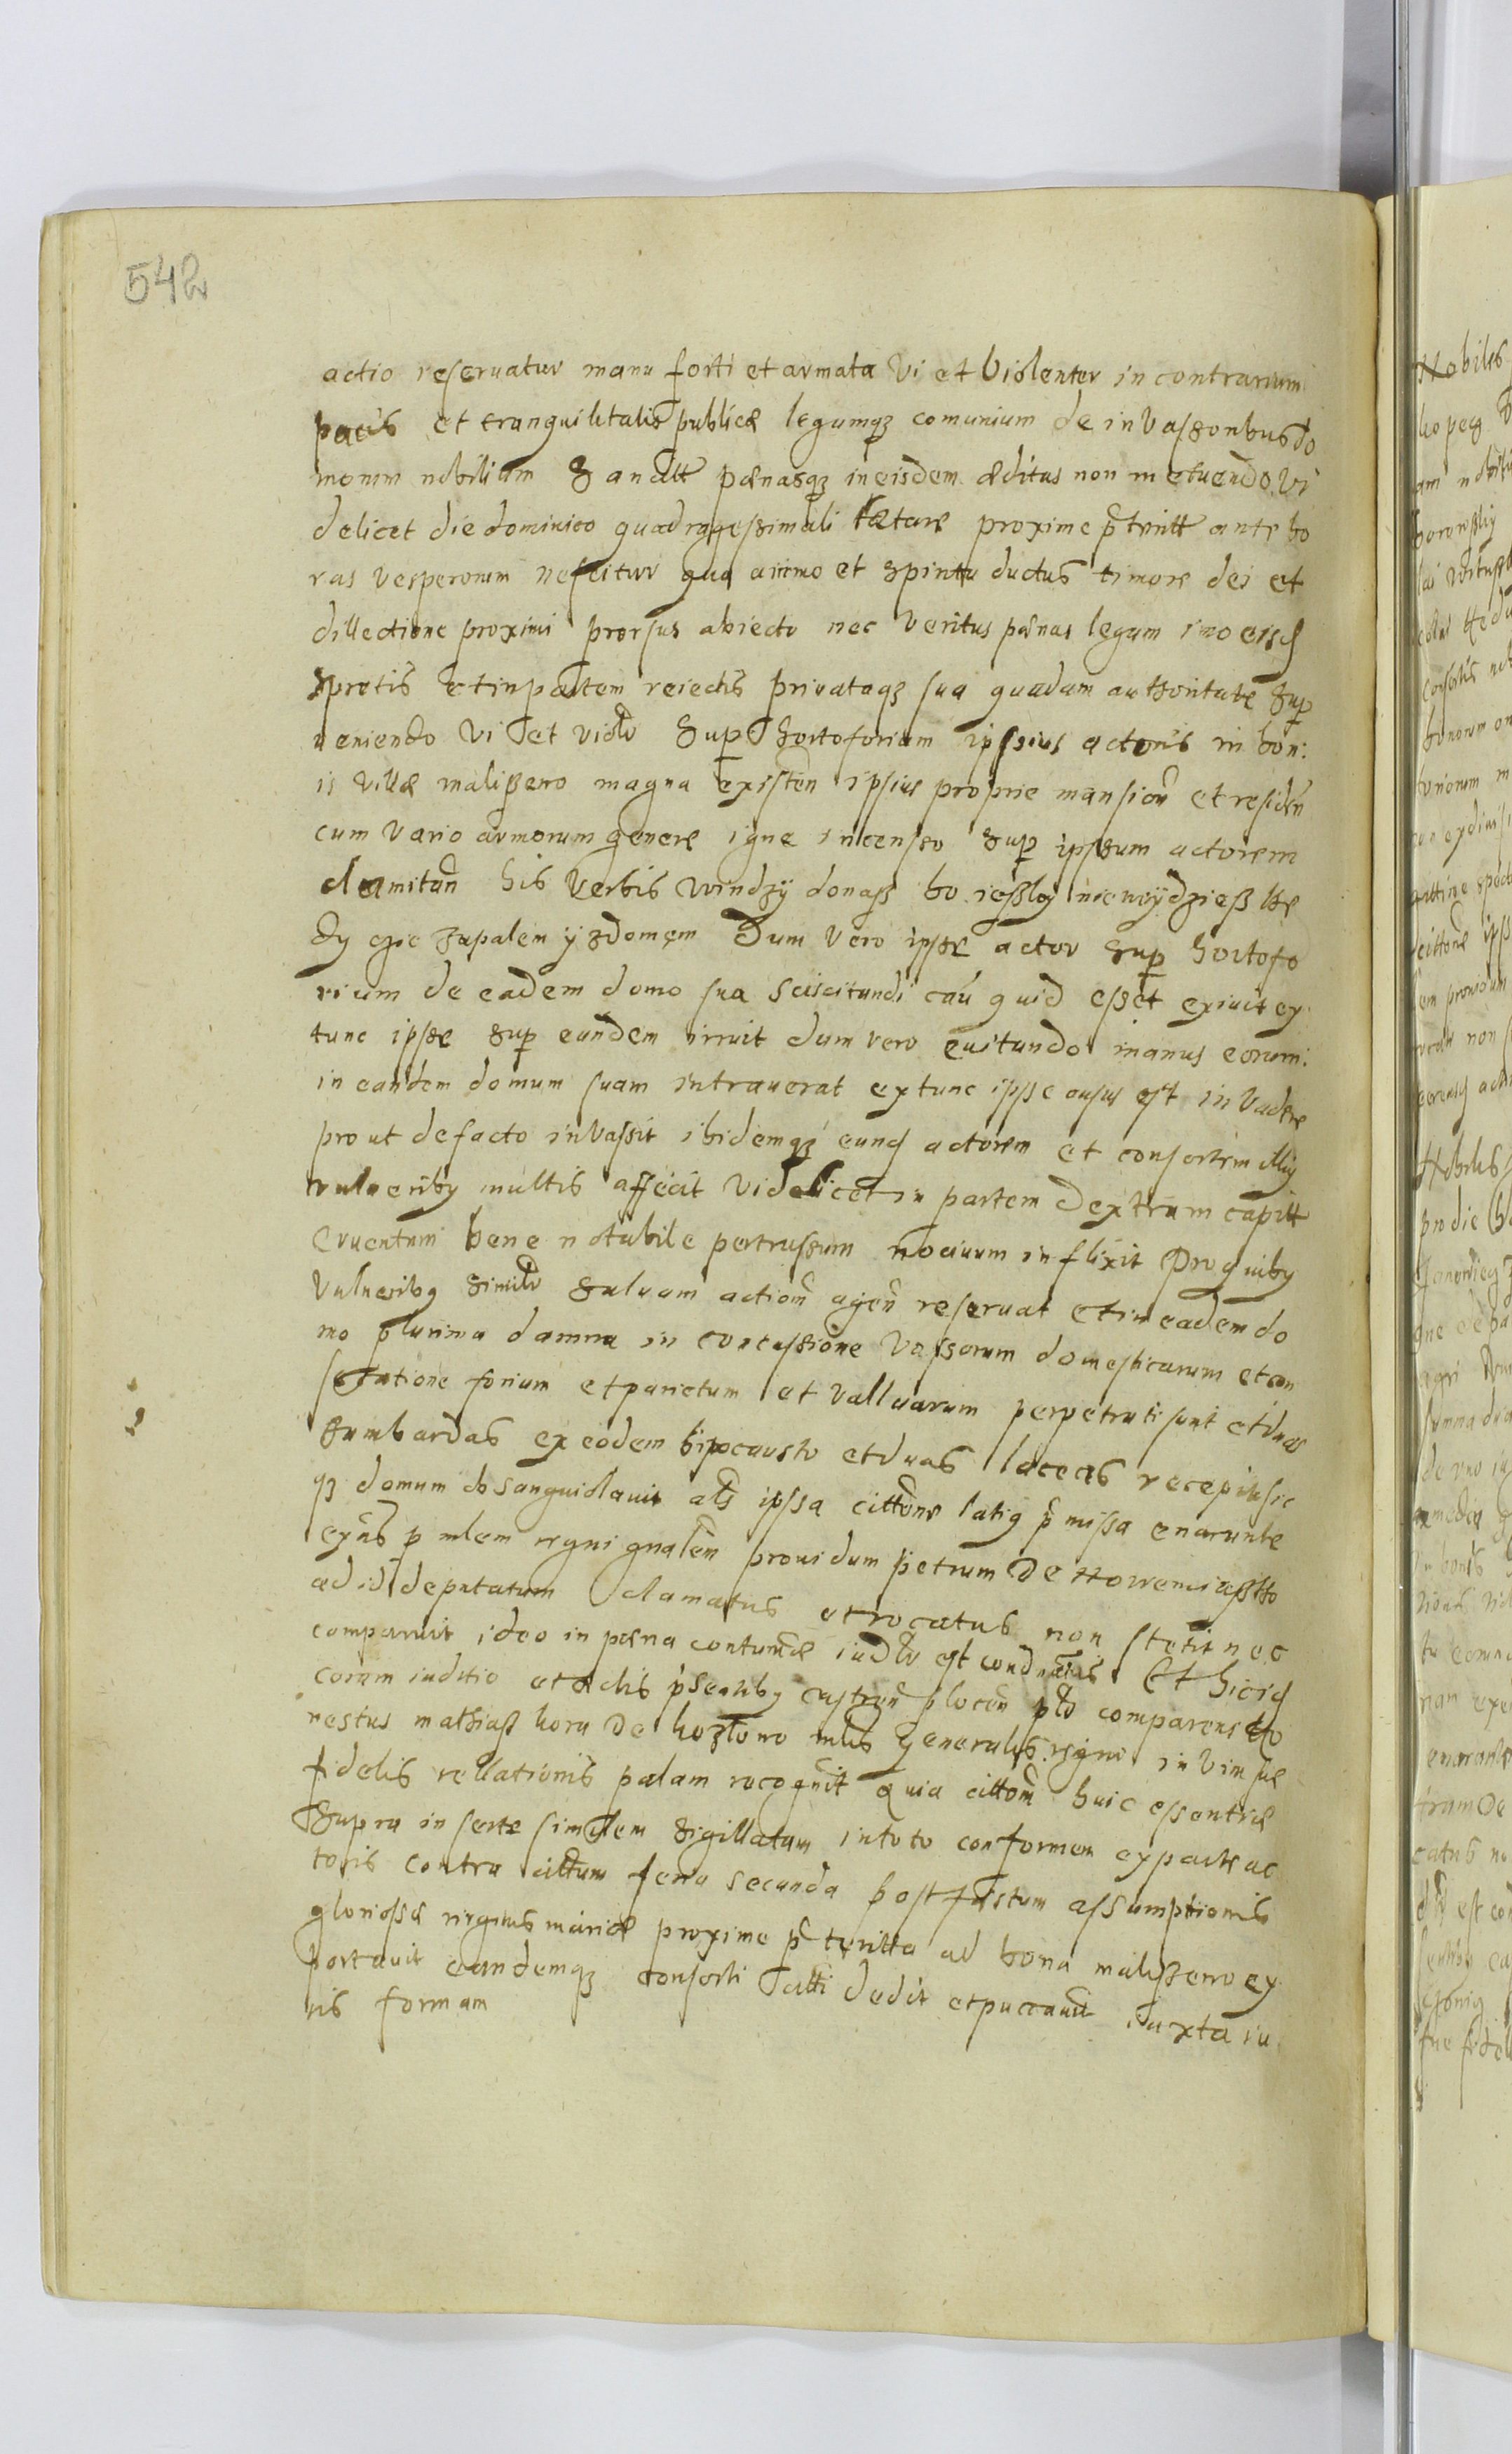 542
actio reseruatur manu forti et armata vi et violenter in contrarium
pacis et tranquilitatis publicæ legumqз comunium de invassonibus do
morum nobilium pænasqз in eisdem æditas non metuendo Vi
delicet die dominico quadragessimali lætare proxime pteritt ante ho
ras vesperorum nescitur quo animo et spiritu ductus timore dei et
dillectione proximi prorsus abiecto nec veritus pænas legum imo eisd
spretis et in partem reiectis privataqз sua quadam authoritate sup
ueniendo vi et violr super hortoforium ipssius actoris in bon:
is villæ maliszewo magna existen ipsius proprie mansion et residen
cum vario armorum genere igne incenso sup ipssum actorem
clamitan his verbis windzÿ donasz bo ieszliÿ nie wÿdziesz
cie zapalem ÿ zdomem Dum vero ipse actor sup hortofo
rium de eadem domo sua sciscitandi cau quid esset exiuit ex
tunc ipse sup eundem irruit dum vero euitando manus eorum:
in eandem domum suam intrauerat extunc ipse ausus est invadere
prout defacto invassit ibidemqз eund actorem et consortem illiq
vulneribq multis affecit videlicet in partem dextram capitt
cruentum bene notabile pertrussum nociuum inflixit Pro quibq
vulneribq similr saluam action agen reseruat et in eadem do
mo plurima damna in concussione vassorum domesticarum et
fenestrarum et parietum et valluarum perpetrati sunt et duas
bumbardas ex eodem hipocausto et duas laceas recepit sic
qз domum obsanguidauit als ipssa cittone latiq pmissa enarante
exns p mlem regni gnalem prouidum petrum De
ad id deputatum clamatus et vocatus non stetit nec
comparuit ideo in pæna contumæ iudlr est condnatus Et hicid
coram iuditio et actis psentibq castren plocen plr comparens ho
nestus mathiasz kora De kozlowo mlis Generalis regni in vim suæ
fidelis rellationis palam recognit quia citton huic essentiæ
supra inserte similem sigillatam in toto conformem ex parte ac
toris contra cittum feria secunda post festum assumptionis
gloriossæ virginis mariæ proxime pteritta ad bona maliszewo ex
portauit eandemqз consorti citti dedit et puccauit iuxta iu
ris formam